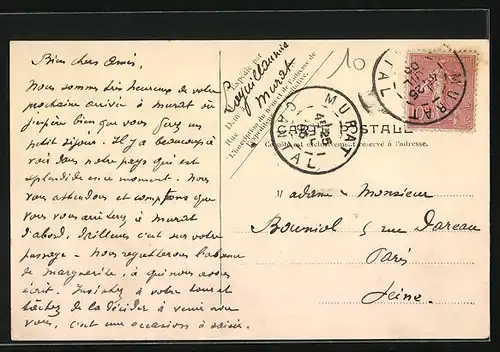 Bien chers amis,
Nous sommes très heureux de votre
prochaine arrivée à Murat où
j'espère bien que vous ferez un
petit séjour. Il y a beaucoup à
voir dans notre pays qui est
splendide en ce moment. Nous
vous attendons et comptons que
vous vous arrêterez à Murat
d'abord, d'ailleurs c'est sur votre
passage. Nous regretterons l'absence
de Marguerite, à qui nous avons
écrit. Insistez à votre tour et
tâchez de la décider à venir avec
vous, c'est une occasion à saisir.
Expédié par
Murat
10
MURAT
CANTAL
CARTE POSTALE
Ce côté est exclusivement réservé à l'adresse.
MURAT
Madame & Monsieur
Bouniol 5 rue Dareau
Paris
Seine.